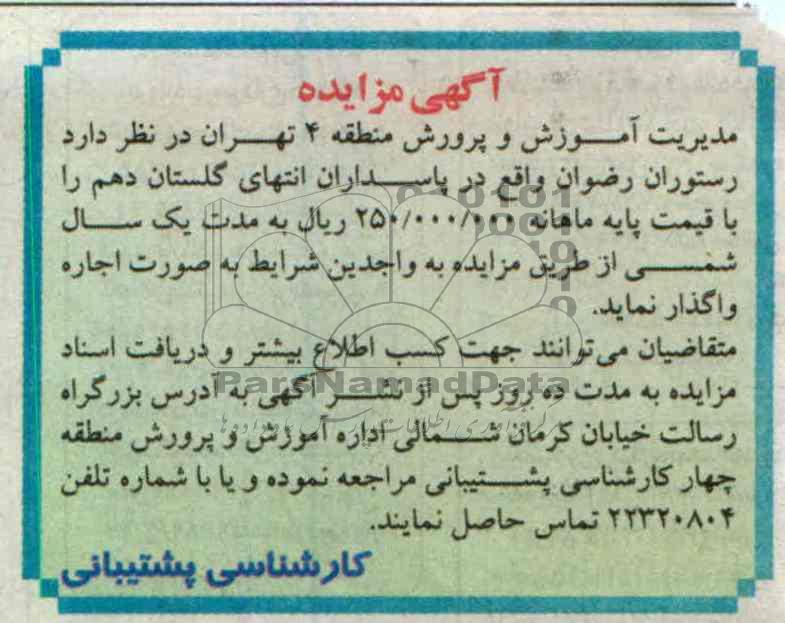 آگهی مزایده
مدیریت آموزش و پرورش منطقه ۴ تهران در نظر دارد
رستوران رضوان واقع در پاسداران انتهای گلستان دهم را
با قیمت پایه ماهانه ۲۵۰/۰۰۰/۰۰۰ ریال به مدت یک سال
شمسی از طریق مزایده به واجدین شرایط به صورت اجاره
واگذار نماید.
متقاضیان می‌توانند جهت کسب اطلاع بیشتر و دریافت اسناد
مزایده به مدت ده روز پس از نشر آگهی به آدرس بزرگراه
رسالت خیابان کرمان شمالی اداره آموزش و پرورش منطقه
چهار کارشناسی پشتیبانی مراجعه نموده و یا با شماره تلفن
۲۲۳۲۰۸۰۴ تماس حاصل نمایند.
کارشناسی پشتیبانی
ParsNamadData